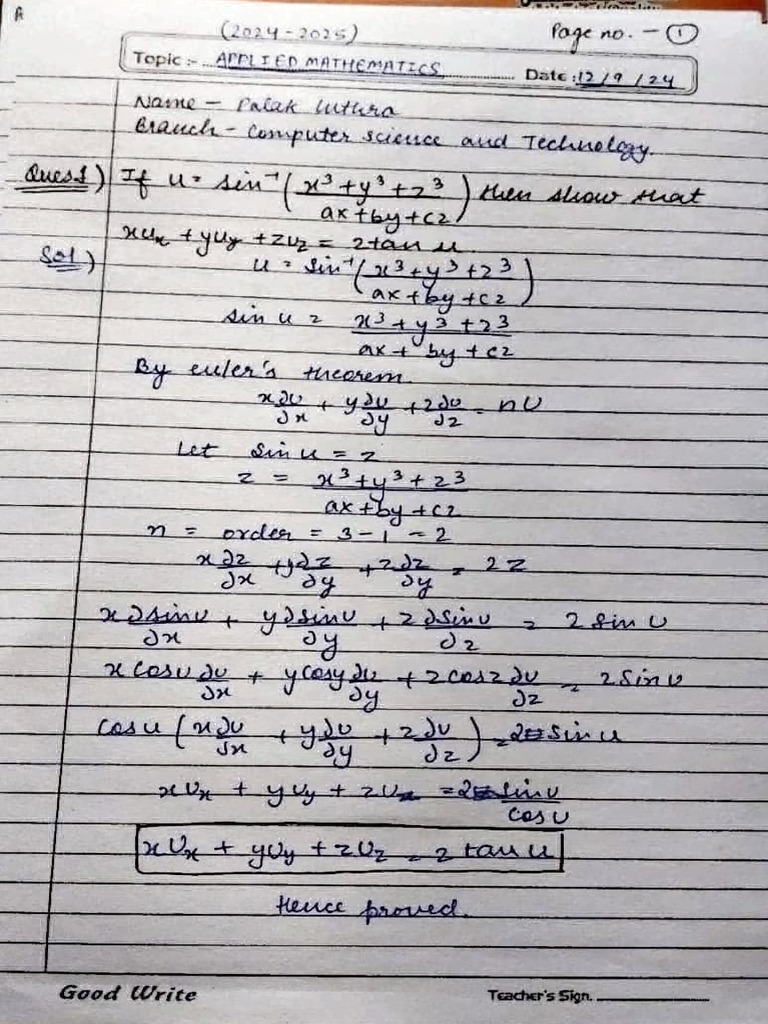 (2024-2025)
Page no. - ①
Topic :- APPLIED MATHEMATICS Date :12/9/24
Name - Palak luthra
Branch - Computer science and Technology.
Ques1) If u = sin⁻¹(x³+y³+z³ / ax+by+cz) then show that
xux + yuy + zuz = 2tan u
Sol) u = sin⁻¹(x³+y³+z³ / ax+by+cz)
sin u = x³+y³+z³ / ax+by+cz
By euler's theorem
x∂u/∂x + y∂u/∂y + z∂u/∂z = nU
Let sin u = z
z = x³+y³+z³ / ax+by+cz
n = order = 3-1 = 2
x∂z/∂x + y∂z/∂y + z∂z/∂y = 2z
x∂sinu/∂x + y∂sinu/∂y + z∂sinu/∂z = 2 sin u
x cosu ∂u/∂x + y cosy ∂u/∂y + z cosz ∂u/∂z = 2 sin u
cos u (x∂u/∂x + y∂u/∂y + z∂u/∂z) = 2 sin u
xUx + yUy + zUz = 2 sinu / cosu
xUx + yUy + zUz = 2 tan u
Hence proved.
Good Write Teacher's Sign.